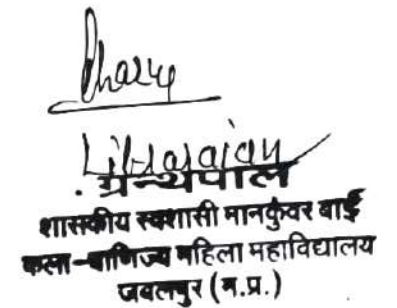 Librarian
ग्रन्थपाल
शासकीय स्वशासी मानकुंवर बाई
कला-वाणिज्य महिला महाविद्यालय
जबलपुर (म.प्र.)